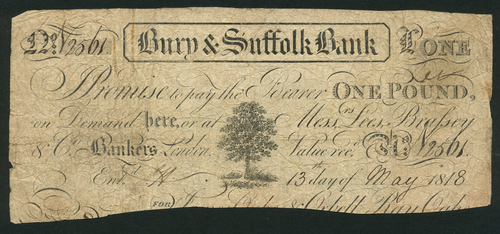 No. N2561 Bury & Suffolk Bank £ONE
I Promise to pay the Bearer ONE POUND,
on Demand here, or at Messrs. Lees Brassey
& Co. Bankers London. Value recd. No. N2561
Entd. 13th day of May 1818
FOR & Orbell Ray